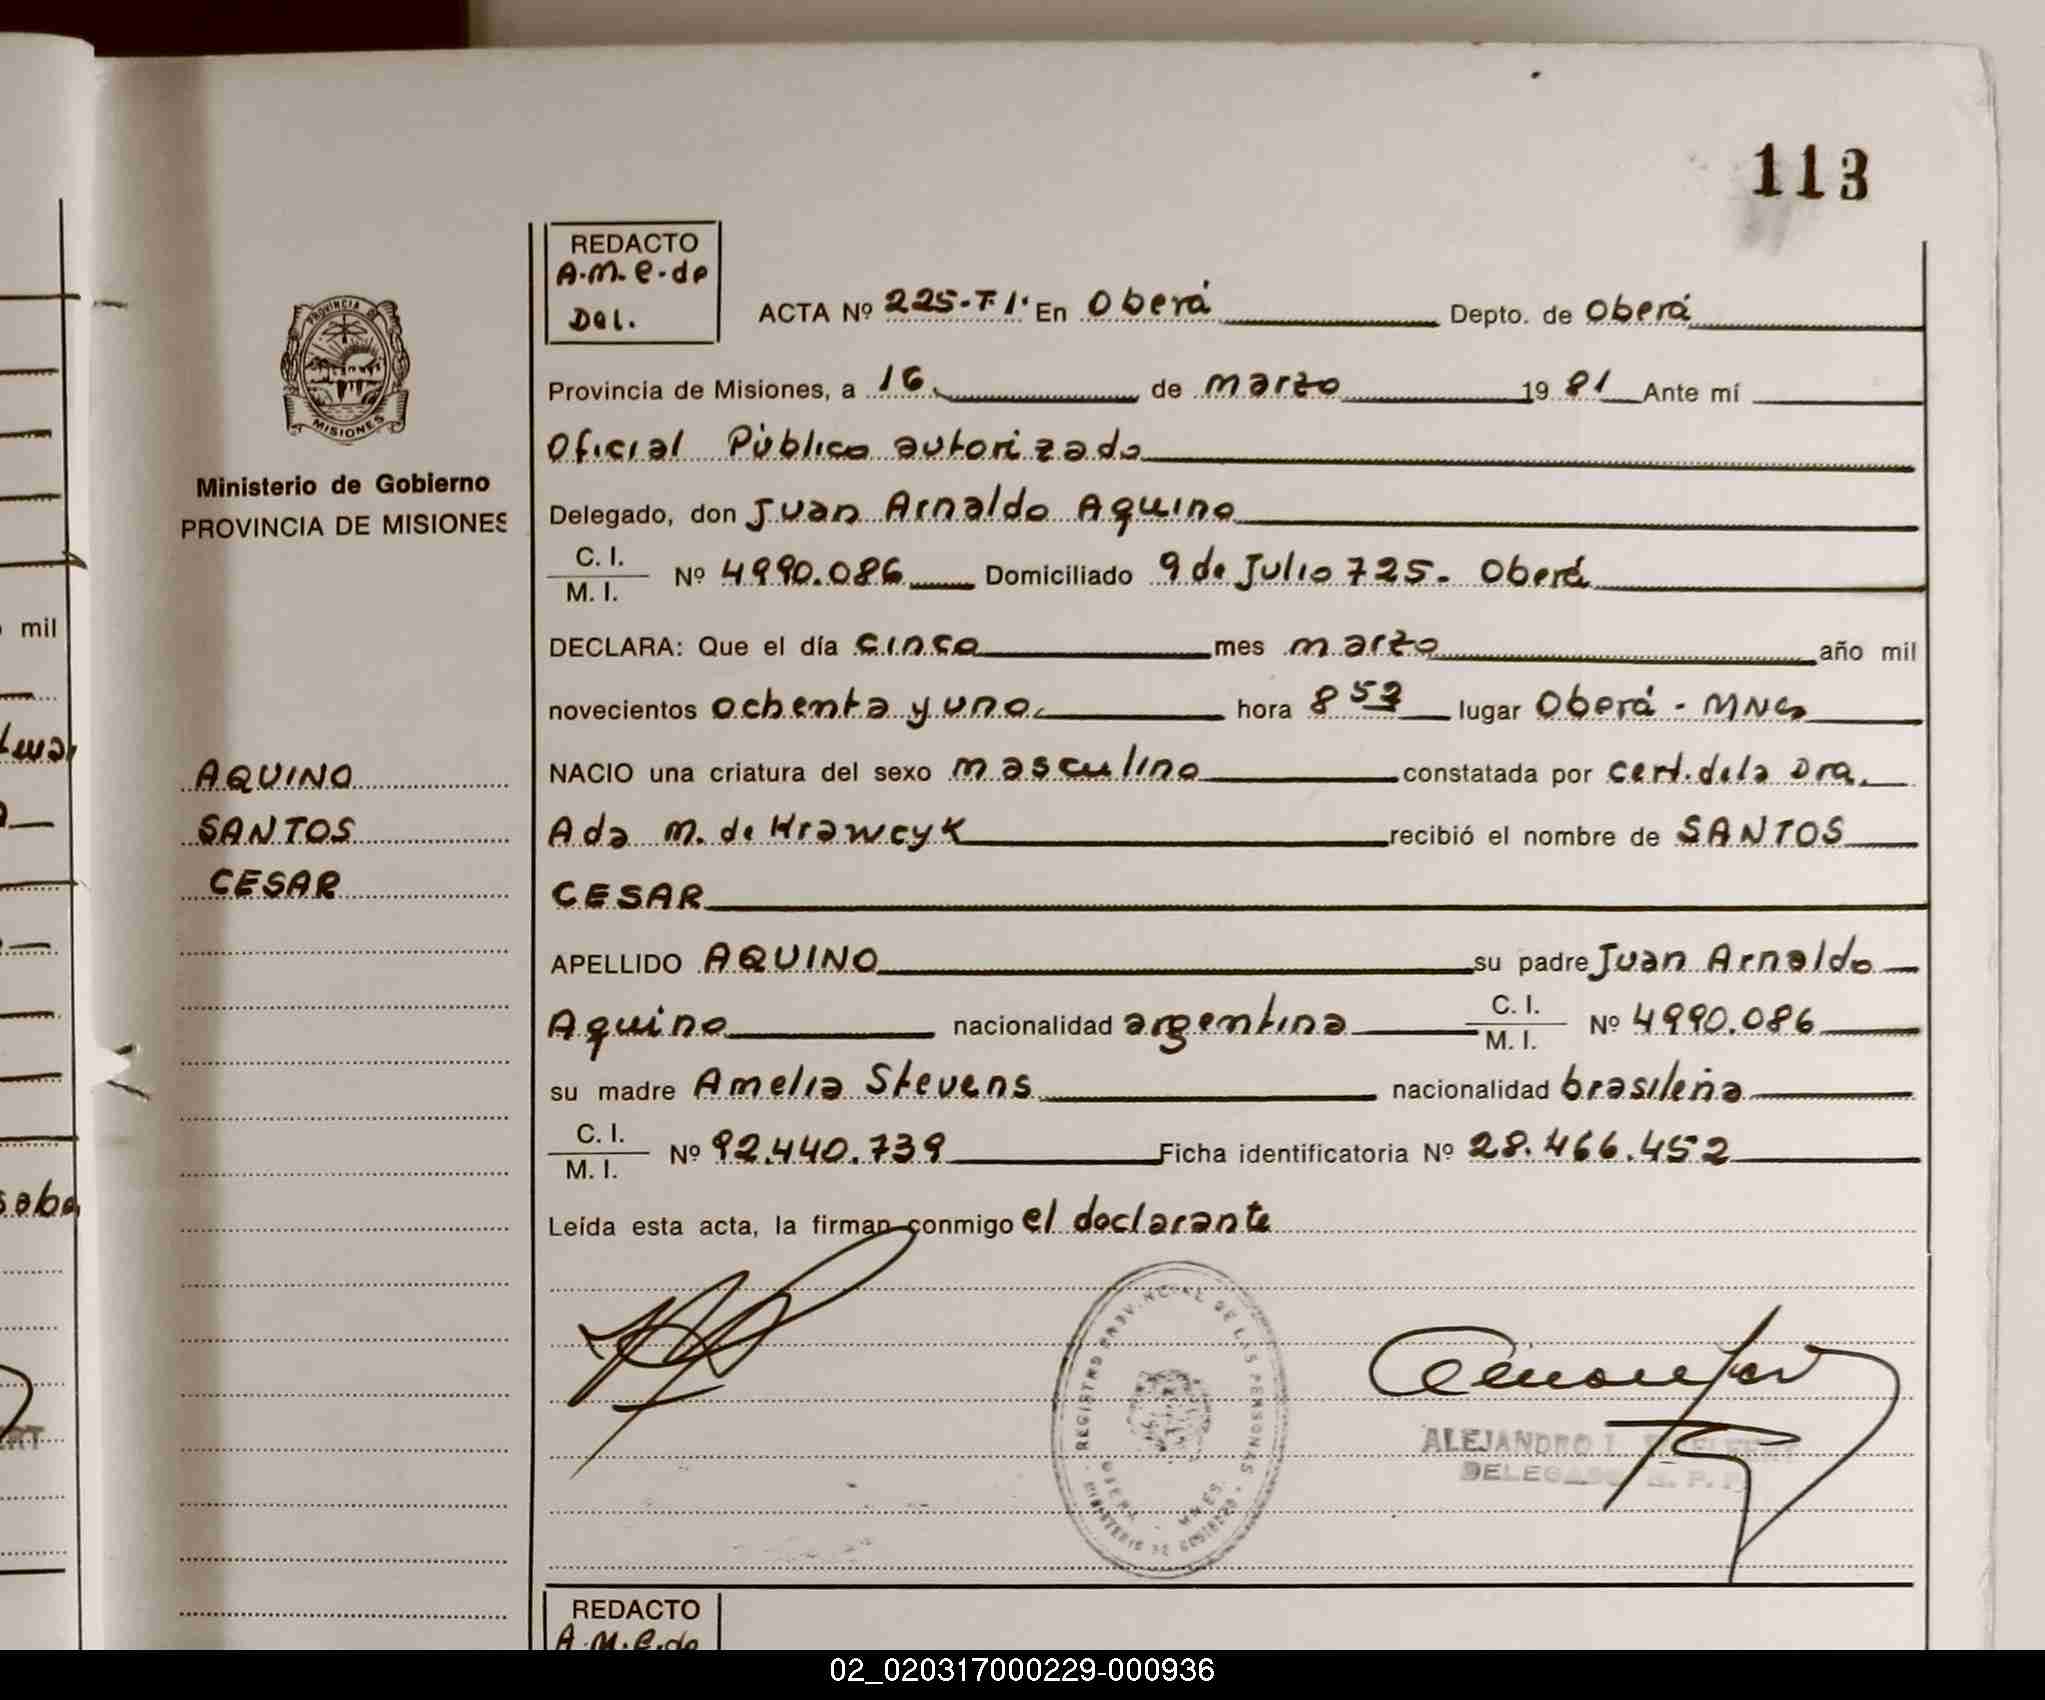 113
REDACTO
A.M.E. de
Del.
ACTA Nº 225-T.I. En Oberá Depto. de Oberá
Provincia de Misiones, a 16 de marzo 1981 Ante mí
Oficial Público autorizado
Delegado, don Juan Arnaldo Aquino
C. I.
M. I. Nº 4990.086 Domiciliado 9 de Julio 725. Oberá
DECLARA: Que el día cinco mes marzo año mil
novecientos ochenta y uno hora 8 lugar Oberá - MNes
NACIO una criatura del sexo masculino constatada por cert. de la Dra.
Ada M. de Krawcyk recibió el nombre de SANTOS
CESAR
APELLIDO AQUINO su padre Juan Arnaldo
Aquino nacionalidad argentina C. I.
M. I. Nº 4990.086
su madre Amelia Stevens nacionalidad brasileña
C. I.
M. I. Nº 92.440.739 Ficha identificatoria Nº 28.466.452
Leída esta acta, la firman conmigo el declarante
PROVINCIA DE
MISIONES
Ministerio de Gobierno
PROVINCIA DE MISIONES
AQUINO
SANTOS
CESAR
REGISTRO PROVINCIAL DE LAS PERSONAS
OBERA - MNES.
MINISTERIO DE GOBIERNO
ALEJANDRO
DELEGADO R. P. P.
mil
REDACTO
A.M.E. de
02_020317000229-000936